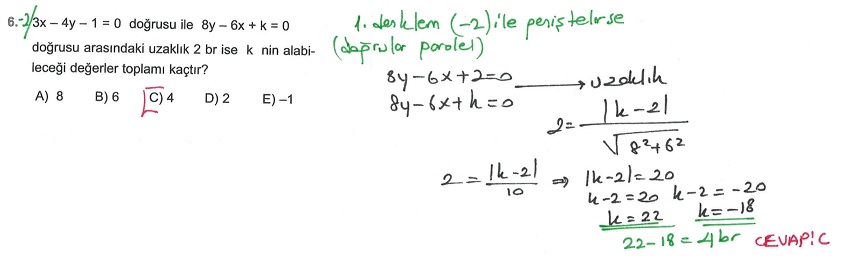 6. -2/ 3x – 4y – 1 = 0 doğrusu ile 8y – 6x + k = 0
doğrusu arasındaki uzaklık 2 br ise k nin alabi-
leceği değerler toplamı kaçtır?
A) 8 B) 6 C) 4 D) 2 E) –1
1. denklem (-2) ile genişletilirse
(doğrular paralel)
8y-6x+2=0 → uzaklık
8y-6x+k=0
2 = |k-2| / √8²+6²
2 = |k-2| / 10 ⇒ |k-2|=20
k-2=20 k-2=-20
k=22 k=-18
22-18=4br CEVAP: C